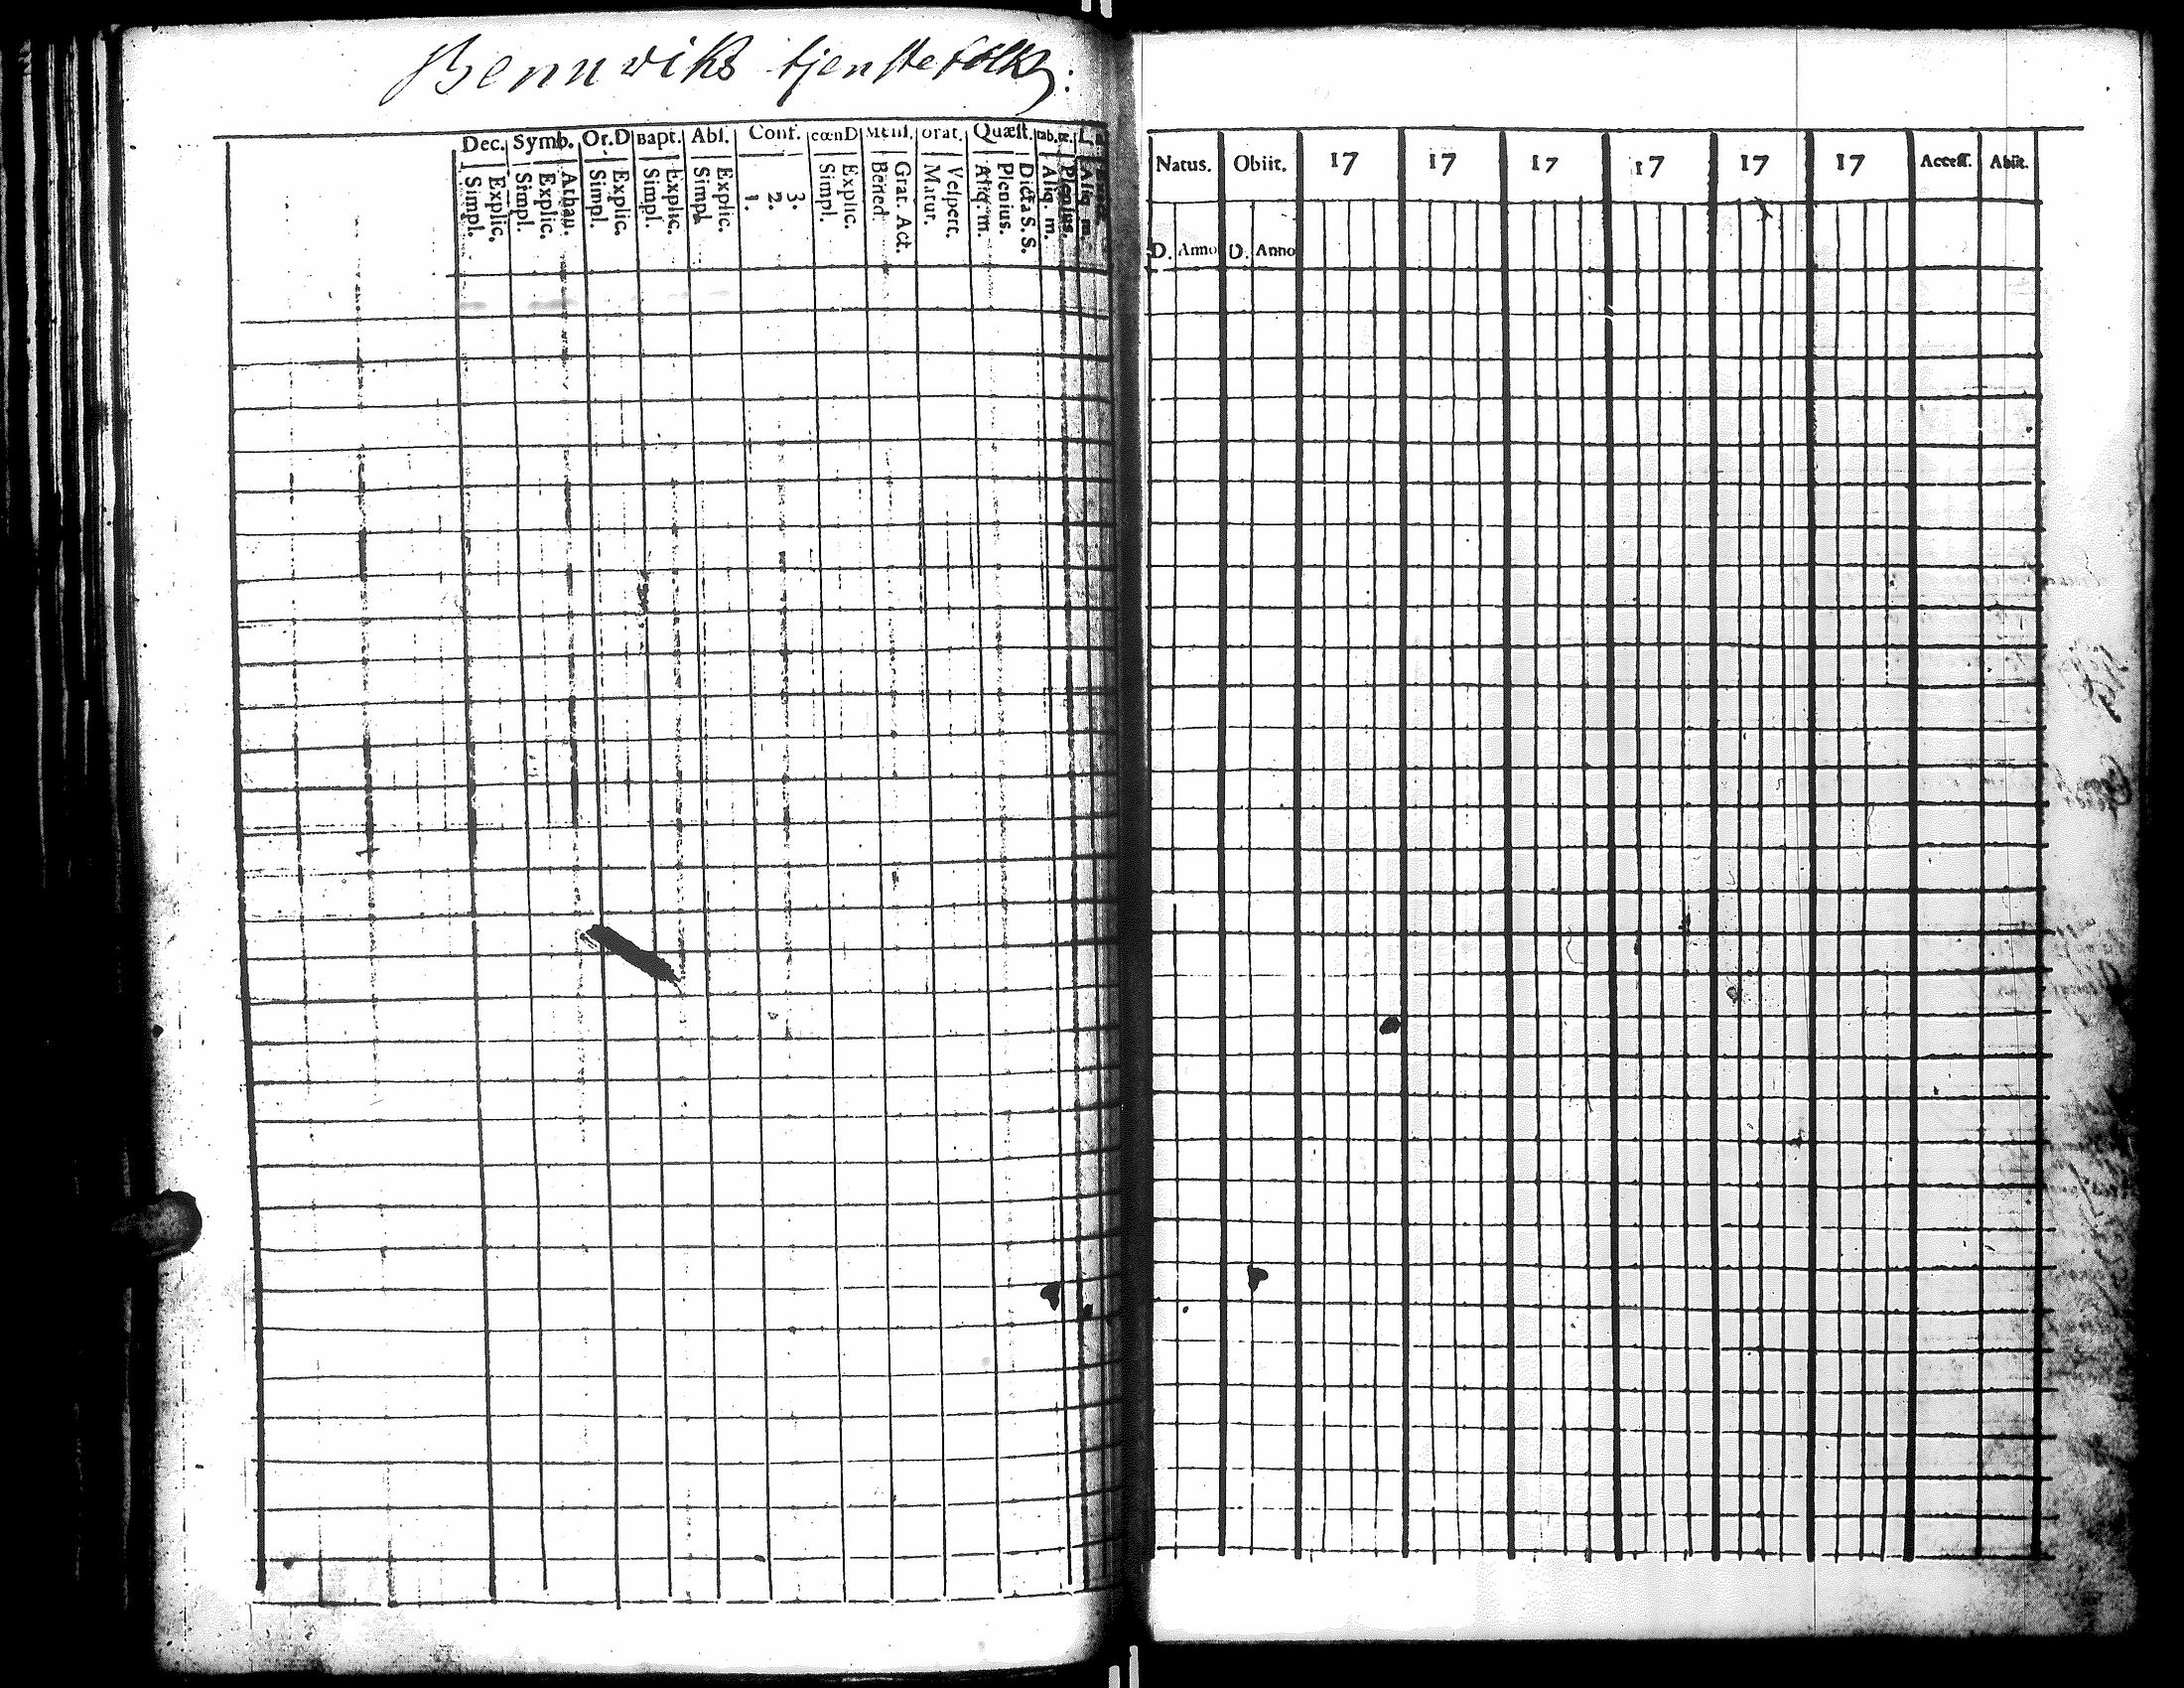 Bennwiks tjenstefolk:
Dec. Symb. Or.D Bapt. Abs. Conf. cœnD Mens. orat. Quæst. tab.œ. L.
Simpl. Explic. Simpl. Explic. Athan. Simpl. Explic. Simpl. Explic. Simpl. Explic. 1. 2. 3. Simpl. Explic. Bened. Grat. Act. Matut. Vespert. Aliq. m. Plenius. Dicta S. S. Aliq. m. Plenius. Aliq. m.
Natus. Obiit. 17 17 17 17 17 17 Access. Abiit.
D. Anno D. Anno